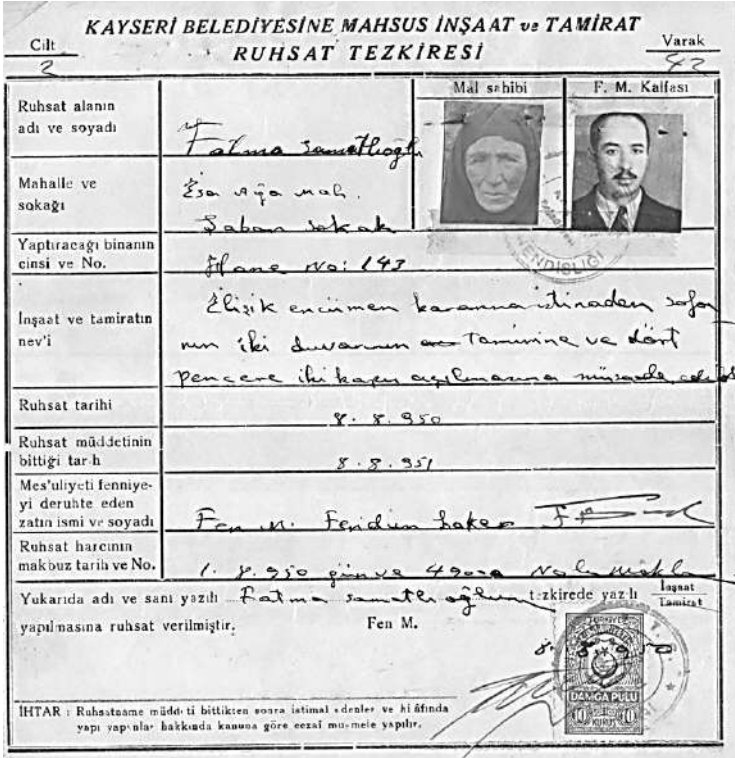 KAYSERİ BELEDİYESİNE MAHSUS İNŞAAT ve TAMİRAT
RUHSAT TEZKİRESİ
Cilt
2
Varak
42
Mal sahibi
F. M. Kalfası
Ruhsat alanın
adı ve soyadı
Fatma
Mahalle ve
sokağı
Esa Ağa Mah.
Şaban sokak
Yaptıracağı binanın
cinsi ve No.
Hane No: 143
ENDİSLİĞİ
İnşaat ve tamiratın
nev'i
İlişik encümen kararına istinaden sofa
nın iki duvarının Tamirine ve dört
pencere iki kapu açılmasına müsaade
Ruhsat tarihi
8.8.950
Ruhsat müddetinin
bittiği tarih
8.8.951
Mes'uliyeti fenniye-
yi deruhte eden
zatın ismi ve soyadı
Fen M. Feridun
Ruhsat harcının
makbuz tarih ve No.
1.8.950 gün ve
Yukarıda adı ve sanı yazılı Fatma tezkirede yazılı İnşaat
Tamirat
yapılmasına ruhsat verilmiştir.
Fen M.
DAMGA PULU
10 KURUŞ 10
İHTAR : Ruhsatname müddeti bittikten sonra istimal edenler ve hilâfında
yapı yapanlar hakkında kanuna göre cezaî muamele yapılır.